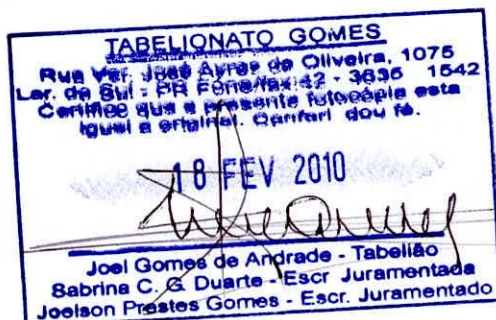 TABELIONATO GOMES
Rua Ver. José Ayres de Oliveira, 1075
Lar. do Sul - PR Fone/fax 42 - 3635 1542
Certifico que a presente fotocópia esta
igual a original. Conferi dou fé.
18 FEV 2010
Joel Gomes de Andrade - Tabelião
Sabrina C. G. Duarte - Escr Juramentada
Joelson Prestes Gomes - Escr. Juramentado